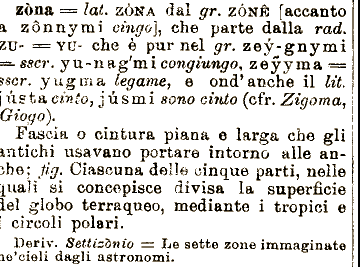 zòna = lat. ZÒNA dal gr. ZÓNÊ [accanto
a zônnymi cingo], che parte dalla rad.
ZU- = YU- che è pur nel gr. zeý-gnymi
= sscr. yu-nag'mi congiungo, zeỹyma =
sscr. yugma legame, e ond'anche il lit.
jústa cinto, júsmi sono cinto (cfr. Zigoma,
Giogo).
Fascia o cintura piana e larga che gli
antichi usavano portare intorno alle an-
che; fig. Ciascuna delle cinque parti, nelle
quali si concepisce divisa la superficie
del globo terraqueo, mediante i tropici e
i circoli polari.
Deriv. Settizònio = Le sette zone immaginate
ne'cieli dagli astronomi.